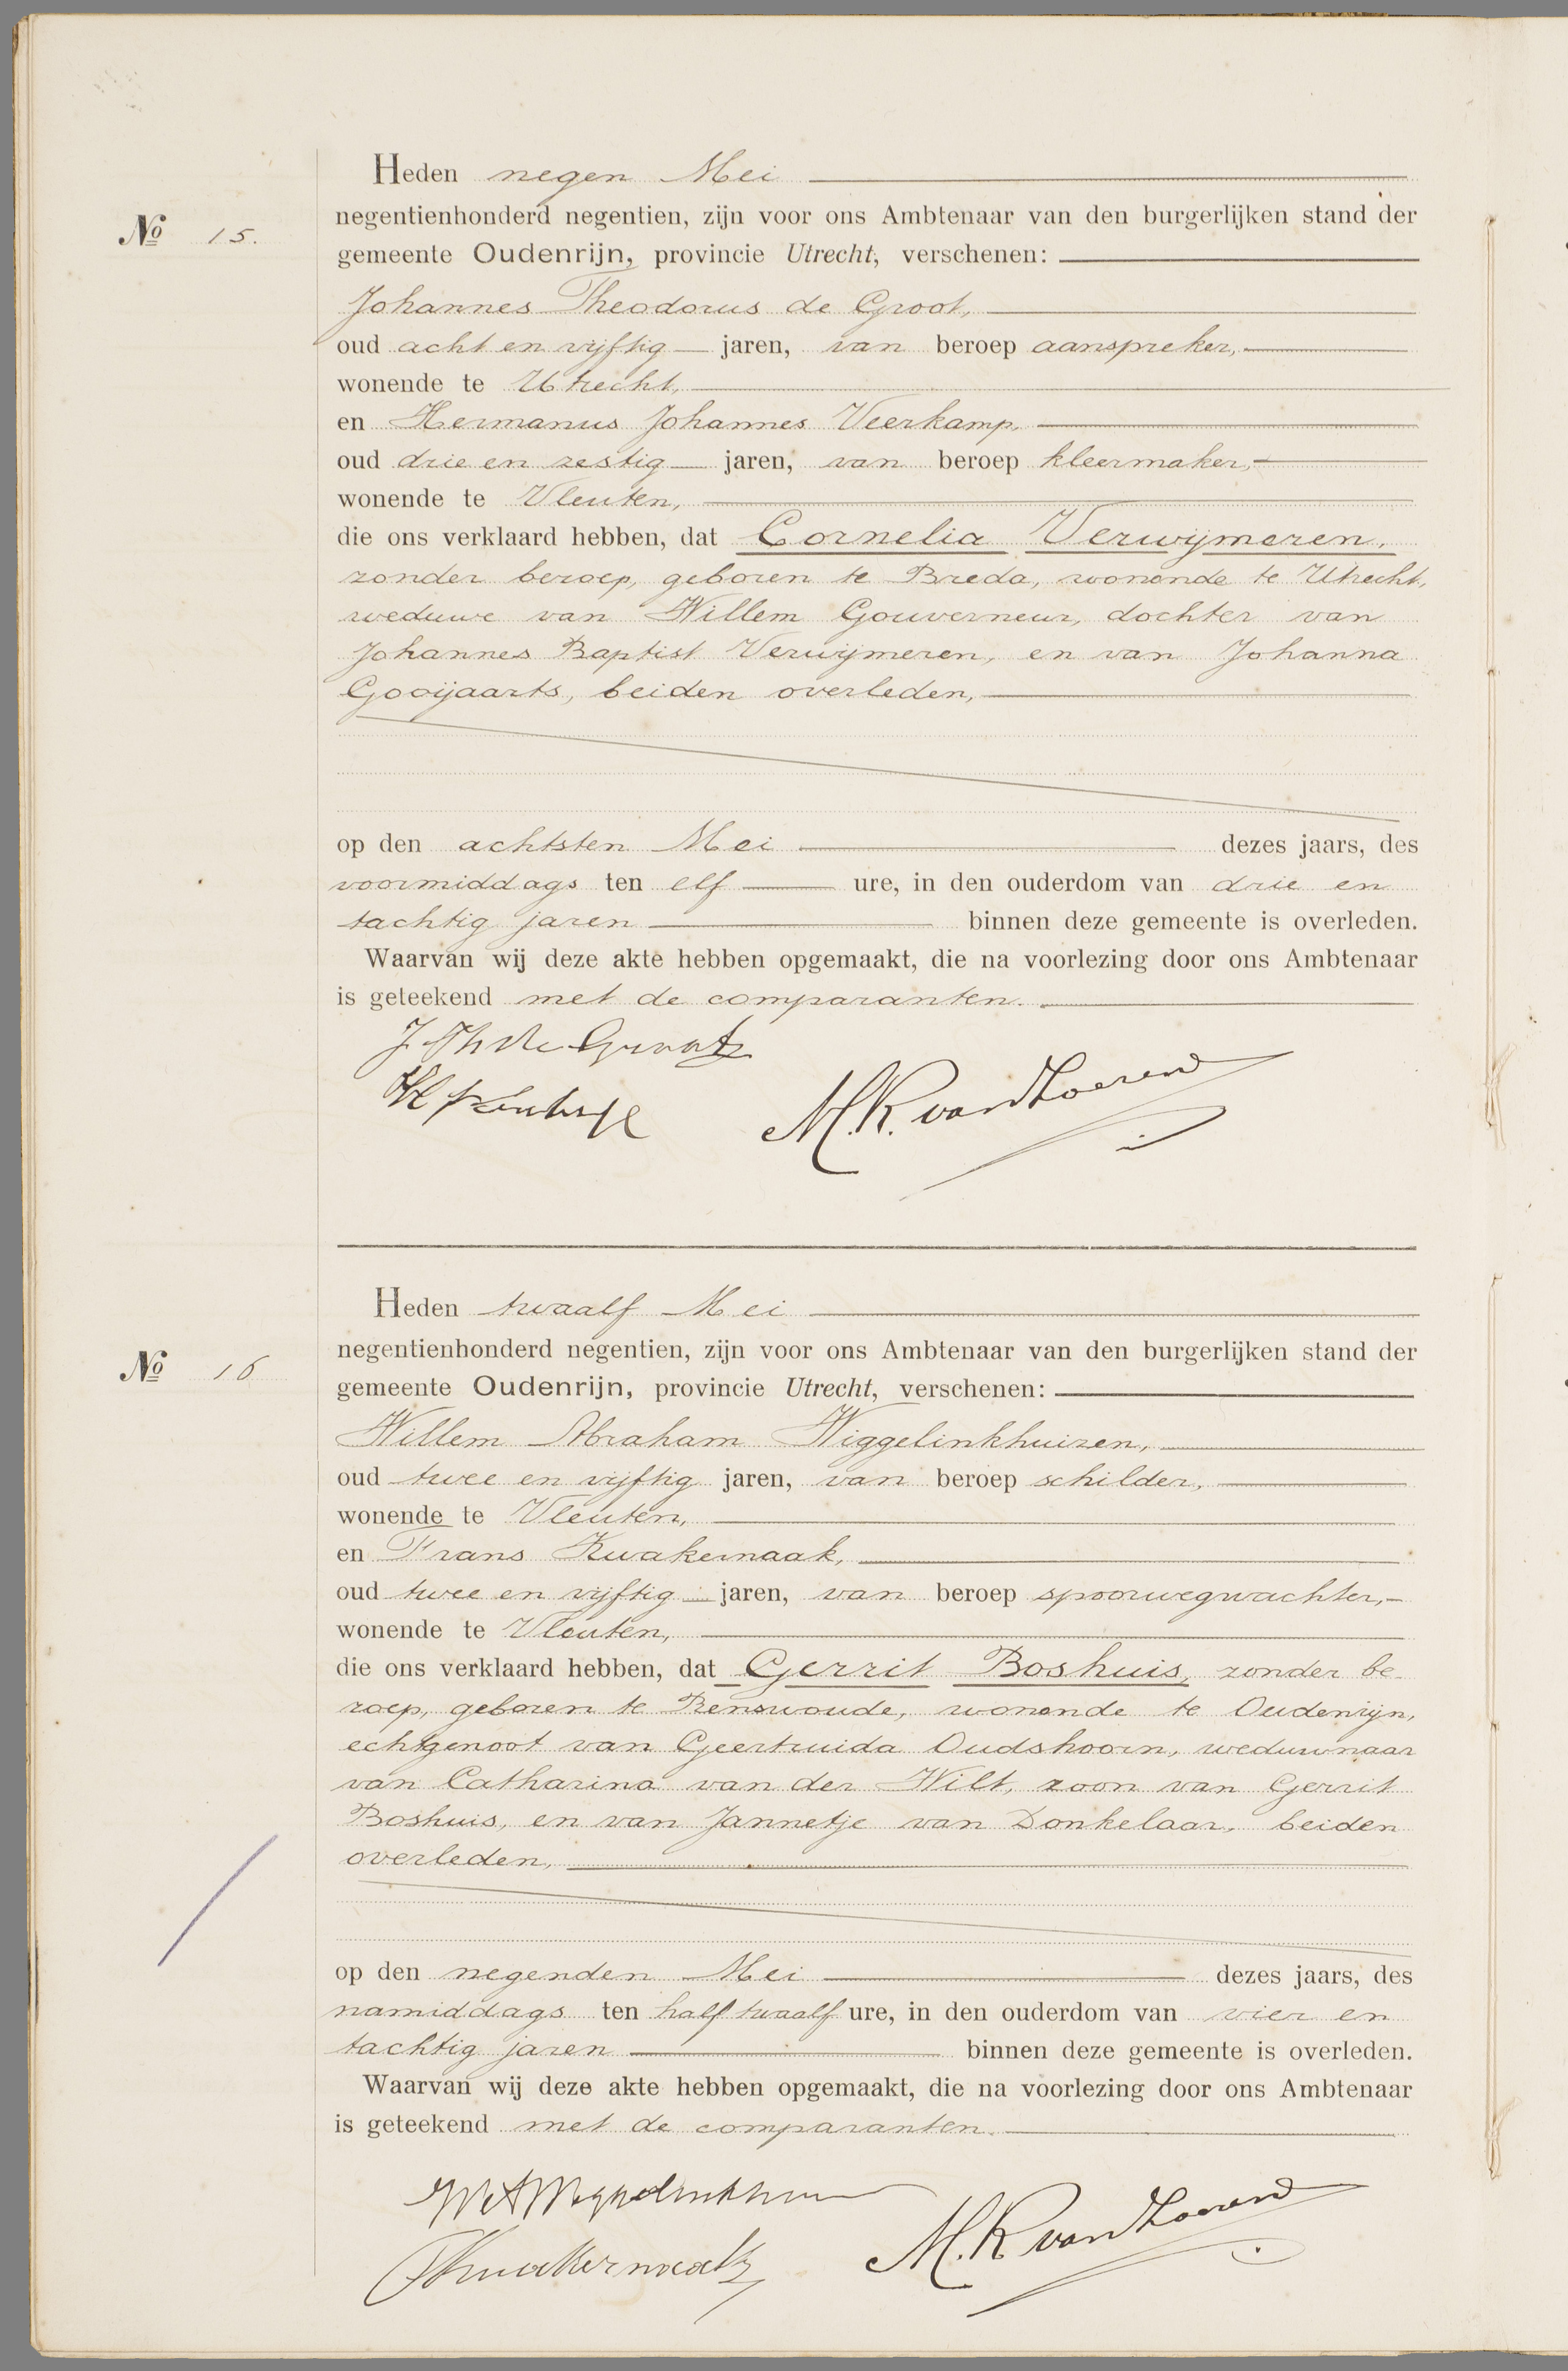 Heden negen Mei
No 15.
negentienhonderd negentien, zijn voor ons Ambtenaar van den burgerlijken stand der
gemeente Oudenrijn, provincie Utrecht, verschenen:
Johannes Theodorus de Groot,
oud acht en vijftig jaren, van beroep aanspreker,
wonende te Utrecht,
en Hermanus Johannes Veerkamp,
oud drie en zestig jaren, van beroep kleermaker,
wonende te Vleuten,
die ons verklaard hebben, dat Cornelia Verwijmeren,
zonder beroep, geboren te Breda, wonende te Utrecht,
weduwe van Willem Gouverneur, dochter van
Johannes Baptist Verwijmeren, en van Johanna
Gooijaarts, beiden overleden,
op den achtsten Mei dezes jaars, des
voormiddags ten elf ure, in den ouderdom van drie en
tachtig jaren binnen deze gemeente is overleden.
Waarvan wij deze akte hebben opgemaakt, die na voorlezing door ons Ambtenaar
is geteekend met de comparanten.
J Th de Groot
M.K. van
Heden twaalf Mei
No 16
negentienhonderd negentien, zijn voor ons Ambtenaar van den burgerlijken stand der
gemeente Oudenrijn, provincie Utrecht, verschenen:
Willem Abraham Wiggelinkhuizen,
oud twee en vijftig jaren, van beroep schilder,
wonende te Vleuten,
en Frans Kwakernaak,
oud twee en vijftig jaren, van beroep spoorwegwachter,
wonende te Vleuten,
die ons verklaard hebben, dat Gerrit Boshuis, zonder be-
roep, geboren te Renswoude, wonende te Oudenrijn,
echtgenoot van Geertruida Oudshoorn, weduwnaar
van Catharina van der Wilt, zoon van Gerrit
Boshuis, en van Jannetje van Donkelaar, beiden
overleden,
op den negenden Mei dezes jaars, des
namiddags ten half twaalf ure, in den ouderdom van vier en
tachtig jaren binnen deze gemeente is overleden.
Waarvan wij deze akte hebben opgemaakt, die na voorlezing door ons Ambtenaar
is geteekend met de comparanten.
FKwakernaak
M.K van